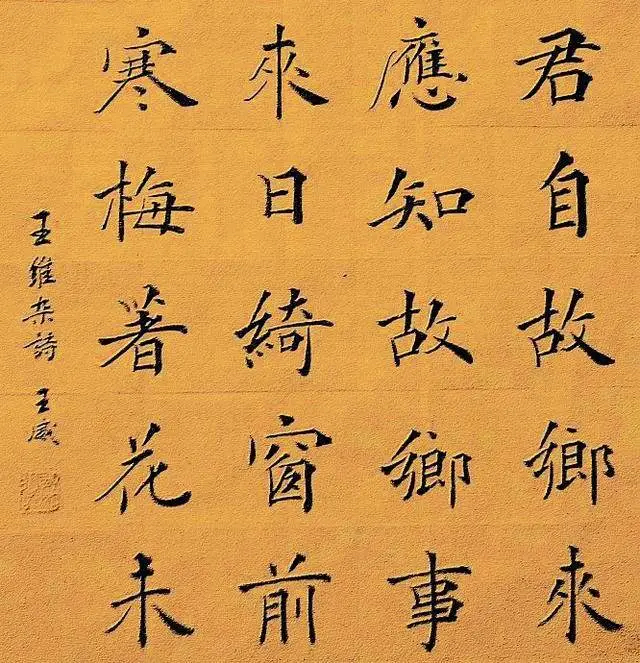 君自故鄉來
應知故鄉事
來日綺窗前
寒梅著花未
王維雜詩 王威